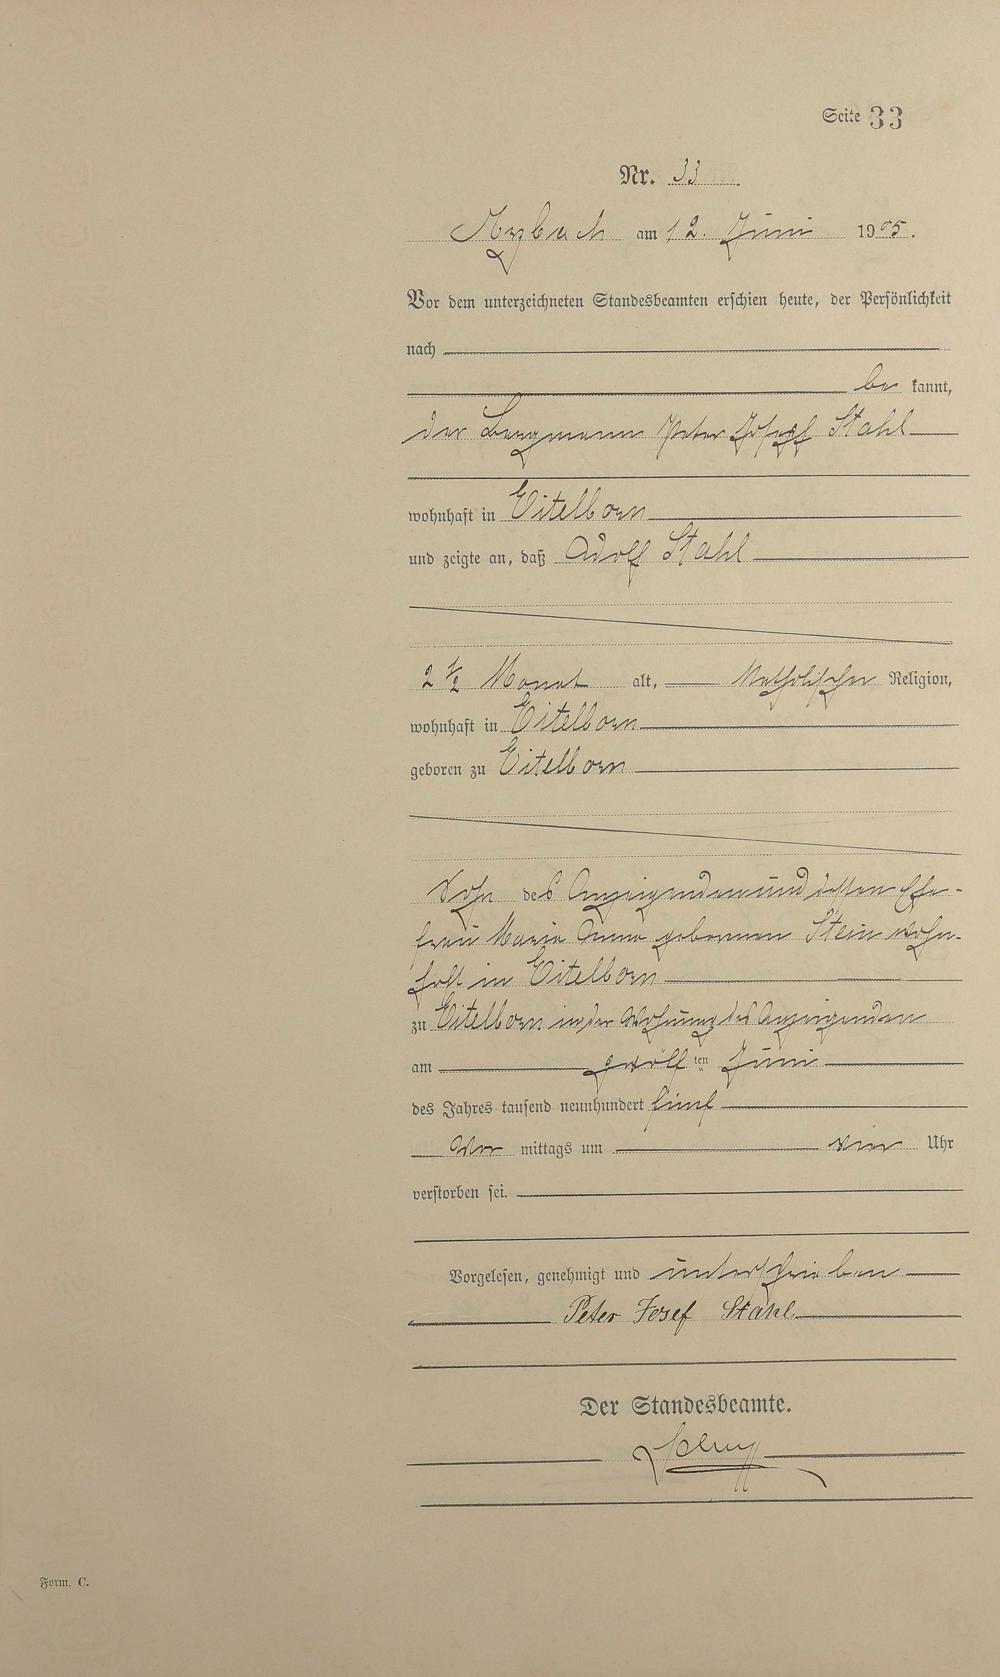 Seite 33
Nr. 33
Arzbach am 12. Juni 1905.
Vor dem unterzeichneten Standesbeamten erschien heute, der Persönlichkeit
nach
be kannt,
der Bergmann Peter Josef Stahl
wohnhaft in Eitelborn
und zeigte an, daß Adolf Stahl
2 1/2 Monat alt, katholischer Religion,
wohnhaft in Eitelborn
geboren zu Eitelborn
Sohn des Anzeigenden und dessen Ehe-
frau Maria Anna geborenen Stein wohn-
haft in Eitelborn
zu Eitelborn in der Wohnung des Anzeigenden
am zwölf ten Juni
des Jahres tausend neunhundert fünf
Vor mittags um vier Uhr
verstorben sei.
Vorgelesen, genehmigt und unterschrieben
Peter Josef Stahl
Der Standesbeamte.
Form. C.